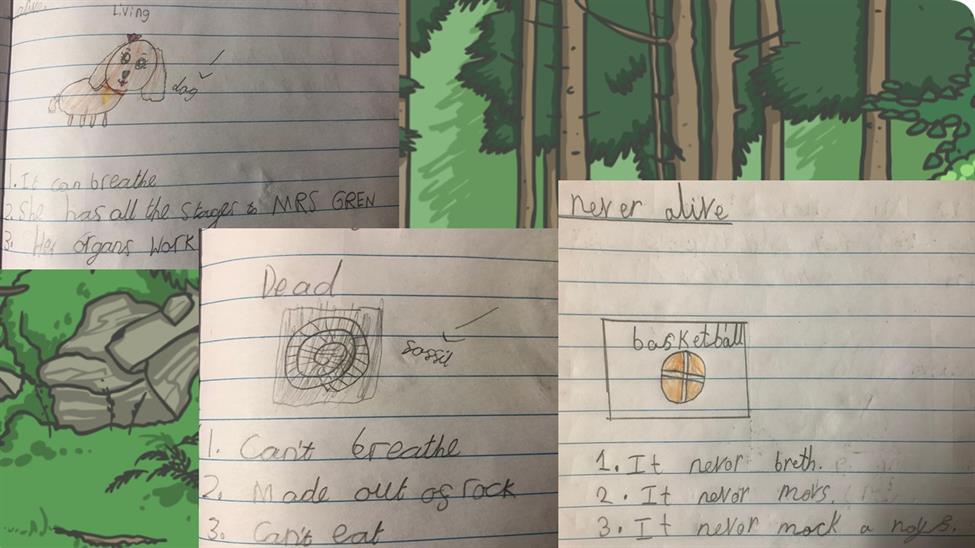 alive.
Living
dog
1. It can breathe
2. She has all the stages to MRS GREN
3. Her organs work
Dead
fossil
1. Can't breathe
2. Made out of rock
3. Can't eat
never alive
basketball
1. It nevor breth.
2. It nevor movs.
3. It nevor mack a noys.